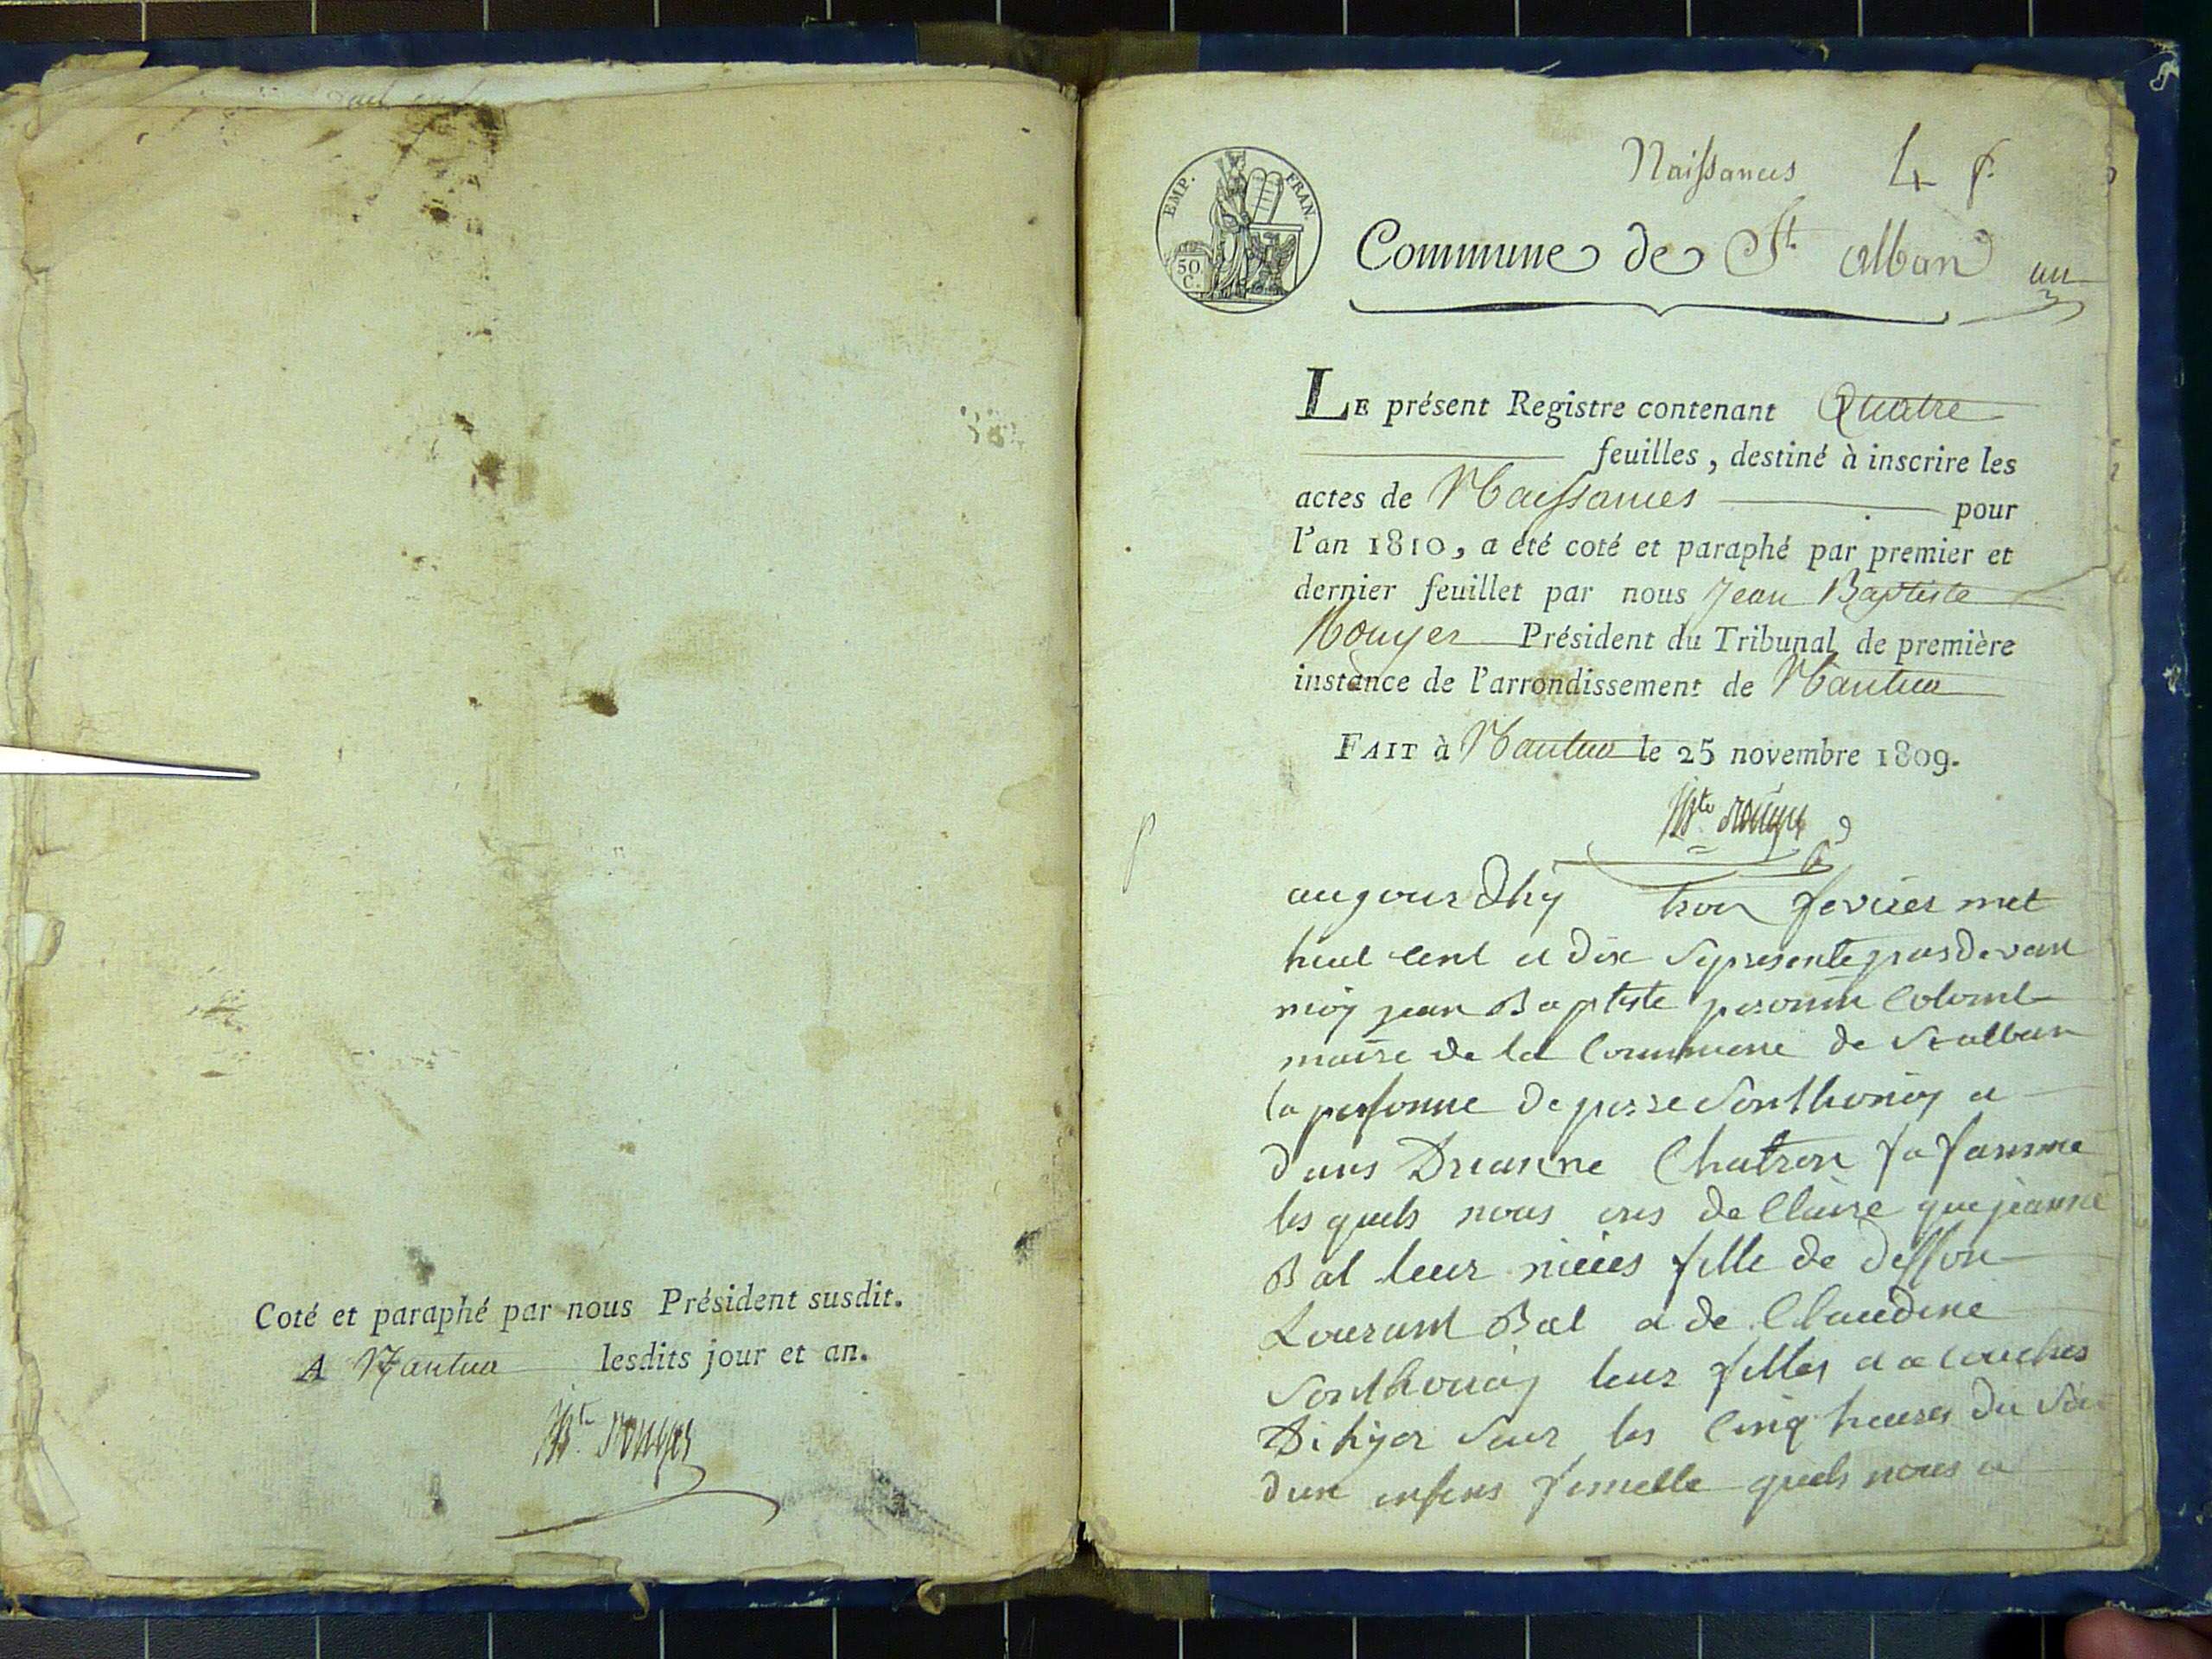 Coté et paraphé par nous Président susdit.
A Nantua lesdits jour et an.
Jn Bte Rouyer
EMP. FRAN.
50 C.
Naissances 4 f.
Commune de St alban
un
LE présent Registre contenant Quatre
feuilles, destiné à inscrire les
actes de Naissances pour
l'an 1810, a été coté et paraphé par premier et
dernier feuillet par nous Jean Baptiste
Rouyer Président du Tribunal de première
instance de l'arrondissement de Nantua
FAIT à Nantua le 25 novembre 1809.
Jn Bte Rouyer
augourdhÿ troi fevrier
huit cent et dix
moÿ jean Baptiste
maire de la Commune de St alban
la personne de Sonthonay et
Chatron sa famme
les quels nous de Claire que jeanne
Bal leur fille de
Bal et de Claudine
Sonthonaÿ leur filles a
sur les Cinq heures du
dun enfens femelle quels nous a